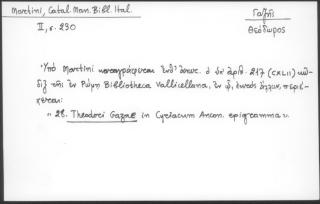 Martini, Catal. Man. Bibl. Ital.
II, σ. 230
Γαζῆς
Θεόδωρος
Ὑπὸ Martini καταγράφεται ἐνθ' ἀνωτ. ὁ ὑπ' ἀριθ. 217 (CXLII) κῶ-
διξ τῆς ἐν Ρώμῃ Bibliotheca Vallicellana, ἐν ᾧ, ἐκτὸς ἄλλων, περιέ-
χεται:
" 28. Theodori Gazae in Cyriacum Ancon. epigramma ".